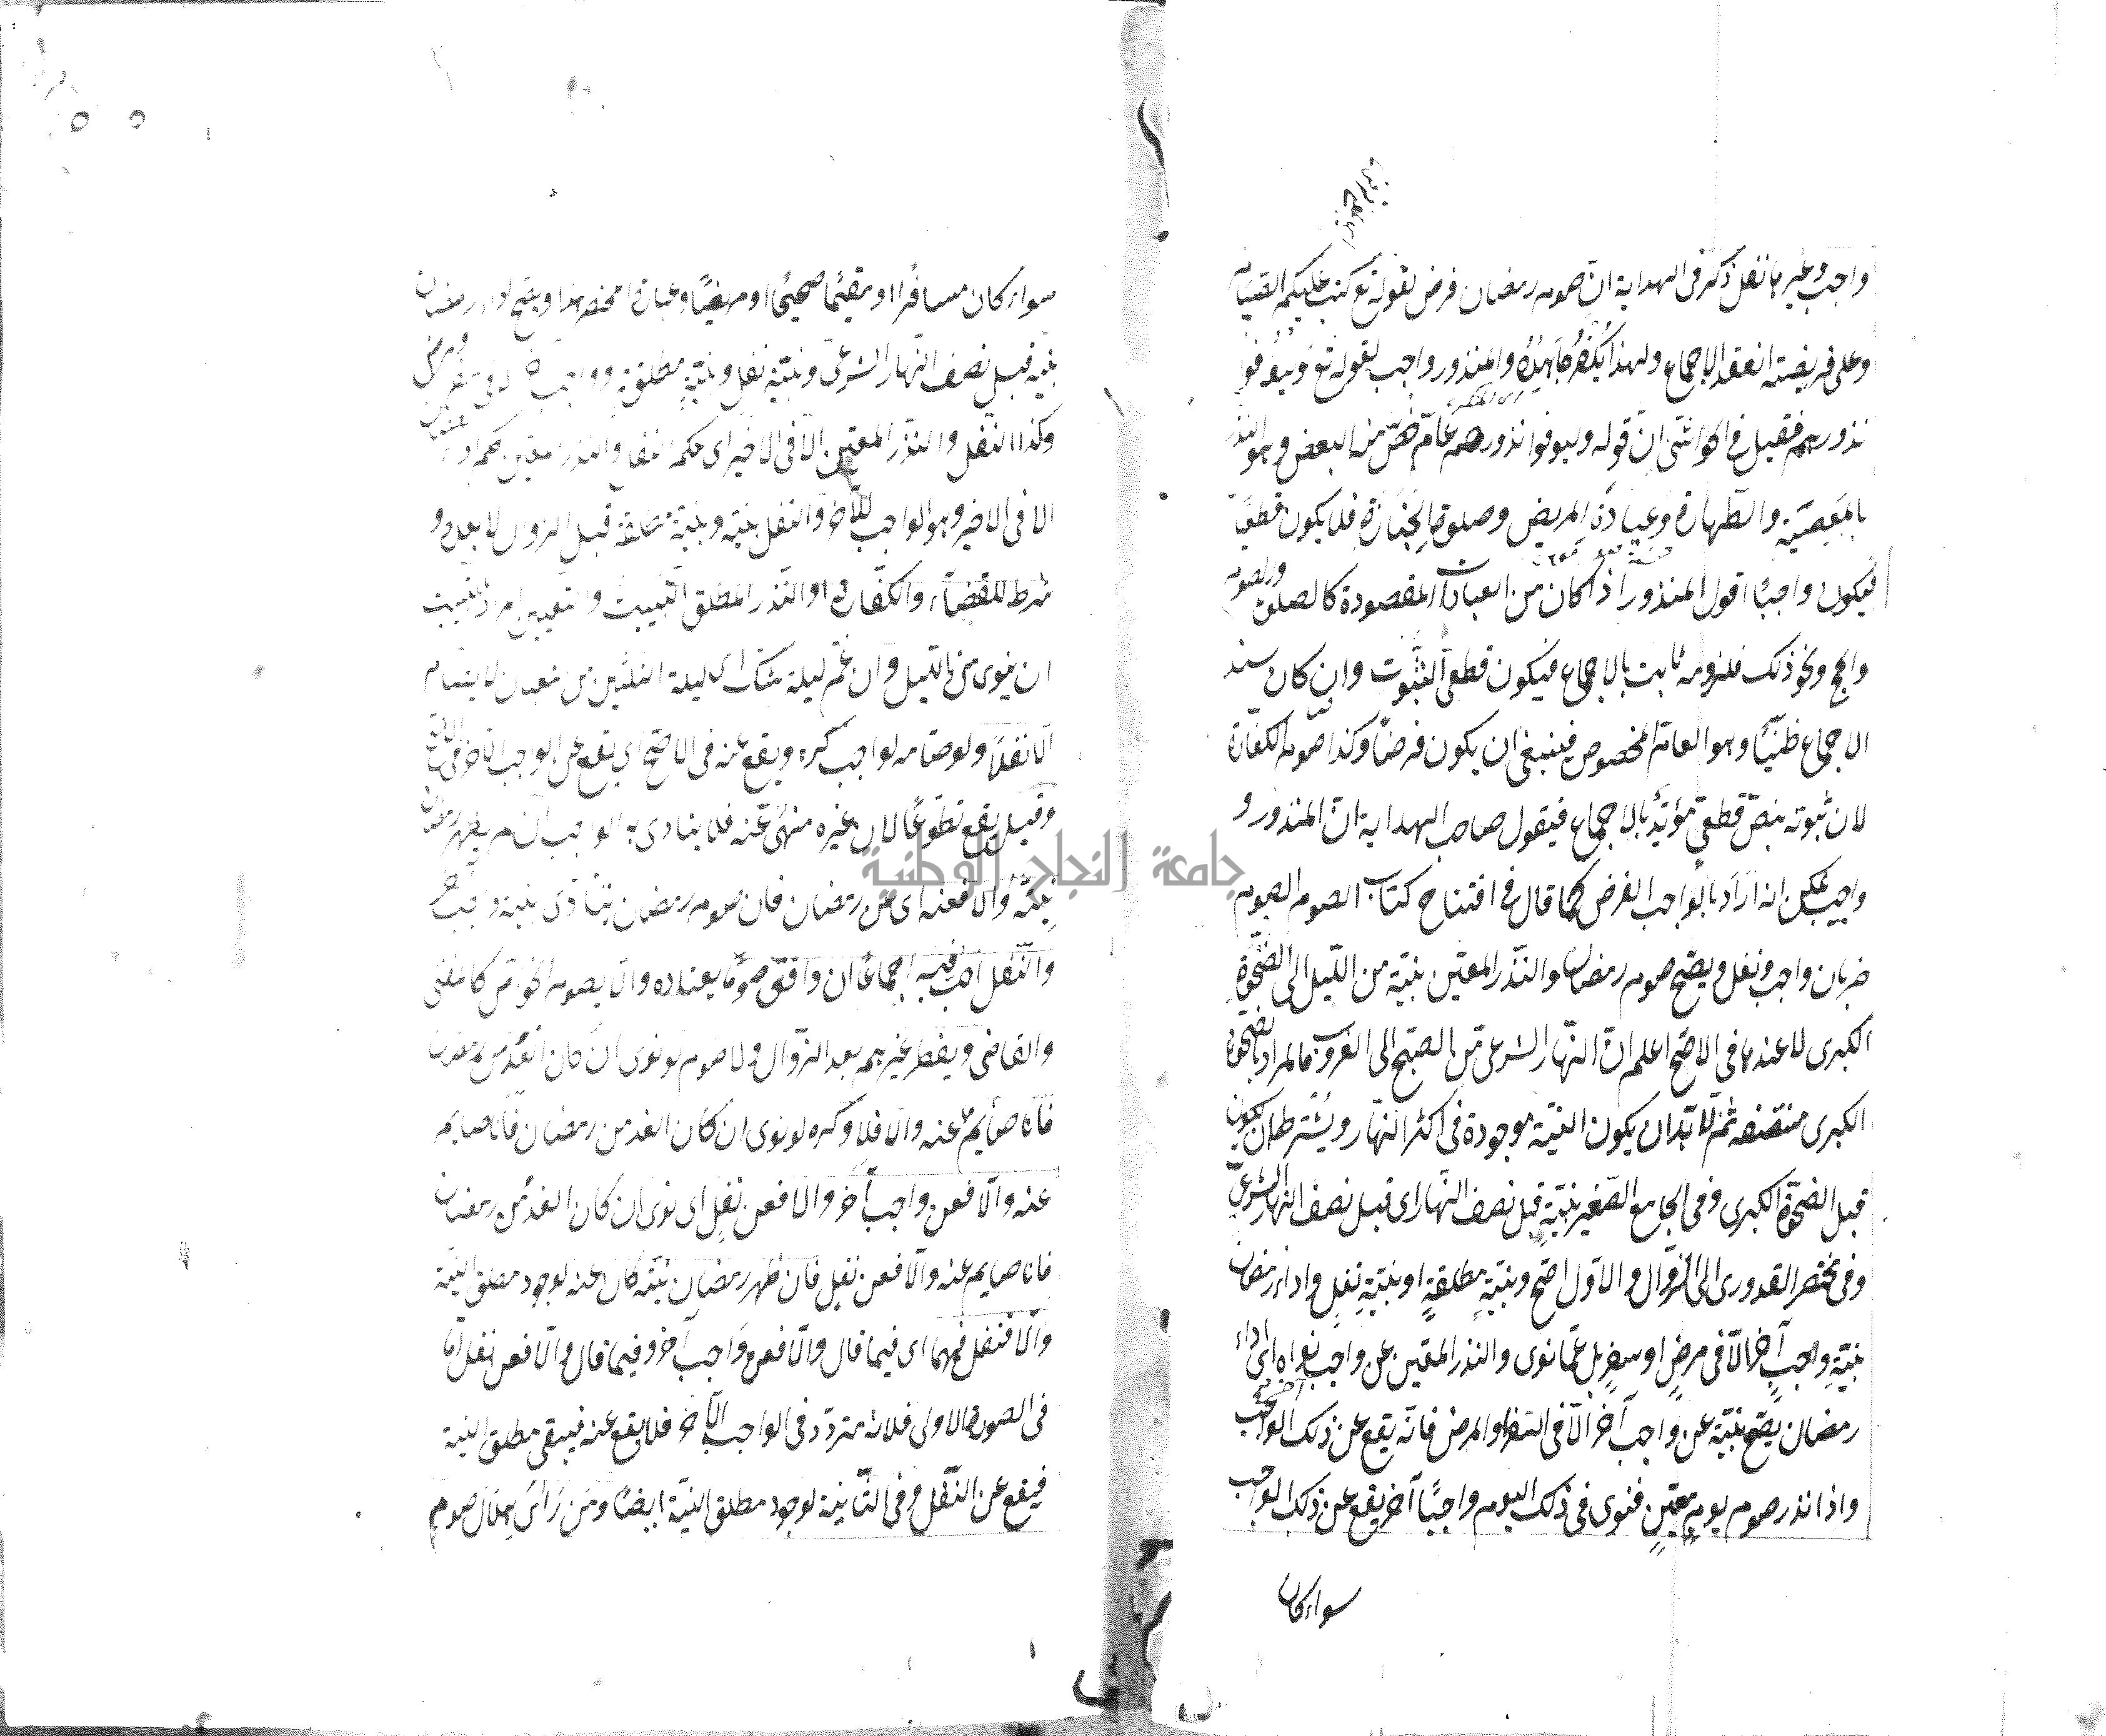 واجب وغيرها نفل ذكر في الهداية ان صوم رمضان فرض لقوله تع كتب عليكم الصيام
وعلى فريضته انعقد الاجماع ولهذا يكفر جاحده والمنذور واجب لقوله تع وليوفوا
نذورهم فقيل في الحواشي ان قوله وليوفوا نذورهم عام خص منه البعض وهو النذر
بالمعصية والطهارة وعيادة المريض وصلوة الجنازة فلا يكون قطعيا
فيكون واجبا اقول المنذور اذا كان من العبادات المقصودة كالصلوة والصوم
والحج ونحو ذلك فلزومه ثابت بالاجماع فيكون قطعي الثبوت وان كان سند
الاجماع ظنيا وهو العام المخصوص فينبغي ان يكون فرضا وكذا صوم الكفارة
لان ثبوته بنص قطعي مؤيد بالاجماع فيقول صاحب الهداية ان المنذور و
واجب يمكن انه اراد بالواجب الفرض كما قال في افتتاح كتاب الصوم الصوم
ضربان واجب ونفل ويصح صوم رمضان والنذر المعين بنية من الليل الى الضحوة
الكبرى لا عندها في الاصح اعلم ان النهار الشرعي من الصبح الى الغروب فالمراد بالضحوة
الكبرى منتصفه ثم لا بد ان يكون النية موجودة في اكثر النهار ويشترط ان يكون
قبل الضحوة الكبرى وفي الجامع الصغير بنية قبل نصف النهار اى قبل نصف النهار الشرعي
وفي مختصر القدورى الى الزوال والاول اصح وبنية مطلقة او بنية نفل واداء رمضان
بنية واجب آخر الا في مرض او سفر بل عما نوى والنذر المعين عن واجب نواه اى اداء
رمضان يصح بنية عن واجب آخر الا في السفر او المرض فانه يقع عن ذلك الواجب
واذا نذر صوم يوم معين فنوى في ذلك اليوم واجبا آخر يقع عن ذلك الواجب
سواء كان
سواء كان مسافرا او مقيما صحيحا او مريضا وعبارة المختصر هذا ويصح اداء رمضان
بنية قبل نصف النهار الشرعي وبنية نفل وبنية مطلقة وواجب آخر الا في سفر ومرض
وكذا النفل والنذر المعين الا في الاخير اى حكم النفل والنذر المعين حكم اداء رمضان
الا في الاخير وهو الواجب الآخر والنفل بنية وبنية مطلقة قبل الزوال لا بعده و
شرط للقضاء والكفارة والنذر المطلق التبييت والتعيين المراد بالتبييت
ان ينوى من الليل وان غم ليلة شك اى ليلة الثلثين من شعبان لا يصام
الا نفلا ولو صامه لواجب كره ويقع عنه في الاصح اى يقع عن الواجب الآخر في الاصح
وقيل يقع تطوعا لان غيره منهى عنه فلا يتادى به الواجب ان لم يظهر رمضان
نيته والا فعنه اى عن رمضان فان صوم رمضان يتادى بنية واجب آخر
والنفل احب فيه اجماعا ان وافق صوما يعتاده والا يصوم الخواص كالمفتى
والقاضى ويفطر غيرهم بعد الزوال ولا صوم لو نوى ان كان الغد من رمضان
فانا صايم عنه والا فلا وكره لو نوى ان كان الغد من رمضان فانا صايم
عنه والا فعن واجب آخر والا فعن نفل اى نوى ان كان الغد من رمضان
فانا صايم عنه والا فعن نفل فان ظهر رمضان نيته كان عنه لوجود مطلق النية
والا فنفل فيهما اى فيما قال والا فعن واجب آخر وفيما قال والا فعن نفل اما
في الصورة الاولى فلانه متردد في الواجب الآخر فلا يقع عنه فيبقى مطلق النية
فيقع عن النفل وفي الثانية لوجود مطلق النية ايضا ومن راى هلال صوم
جامعة النجاح الوطنية